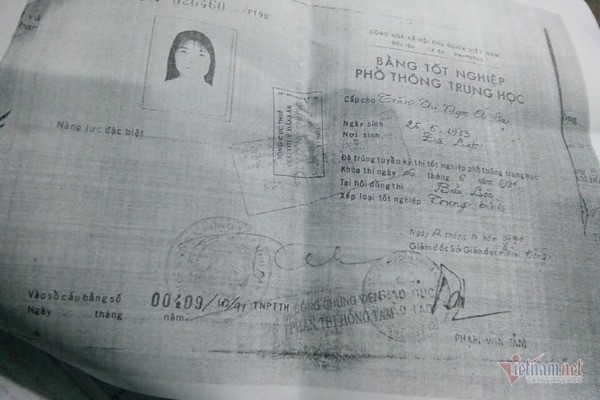 026460 /P190
Năng lực đặc biệt
TỔNG CỤC THUẾ
CỤC THUẾ ĐẮK LẮK
Vào sổ cấp bằng số 00409
TNPTTH
Ngày tháng năm
CỘNG HÒA XÃ HỘI CHỦ NGHĨA VIỆT NAM
Độc lập Tự do Hạnh phúc
BẰNG TỐT NGHIỆP
PHỔ THÔNG TRUNG HỌC
Cấp cho Trần Thị Ngọc
Ngày sinh 25.6.1973
Nơi sinh Đà Lạt
Đã trúng tuyển kỳ thi tốt nghiệp phổ thông trung học
Khóa thi ngày 06 tháng 6 năm
Tại hội đồng thi Bảo Lộc
Xếp loại tốt nghiệp Trung bình
Ngày tháng năm
Giám đốc Sở Giáo dục
CÔNG CHỨNG VIÊN
PHAN THỊ HỒNG TÂM
GIÁO DỤC
PHẠM VĂN TÂM
Vietnam.net